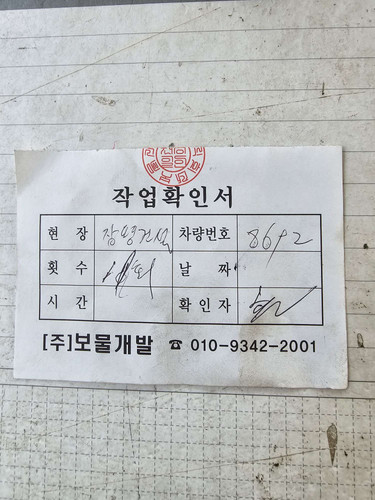 작업확인서
현 장 장명건설 차량번호 8692
횟 수 날 짜
시 간 확 인 자
[주]보물개발 ☎ 010-9342-2001